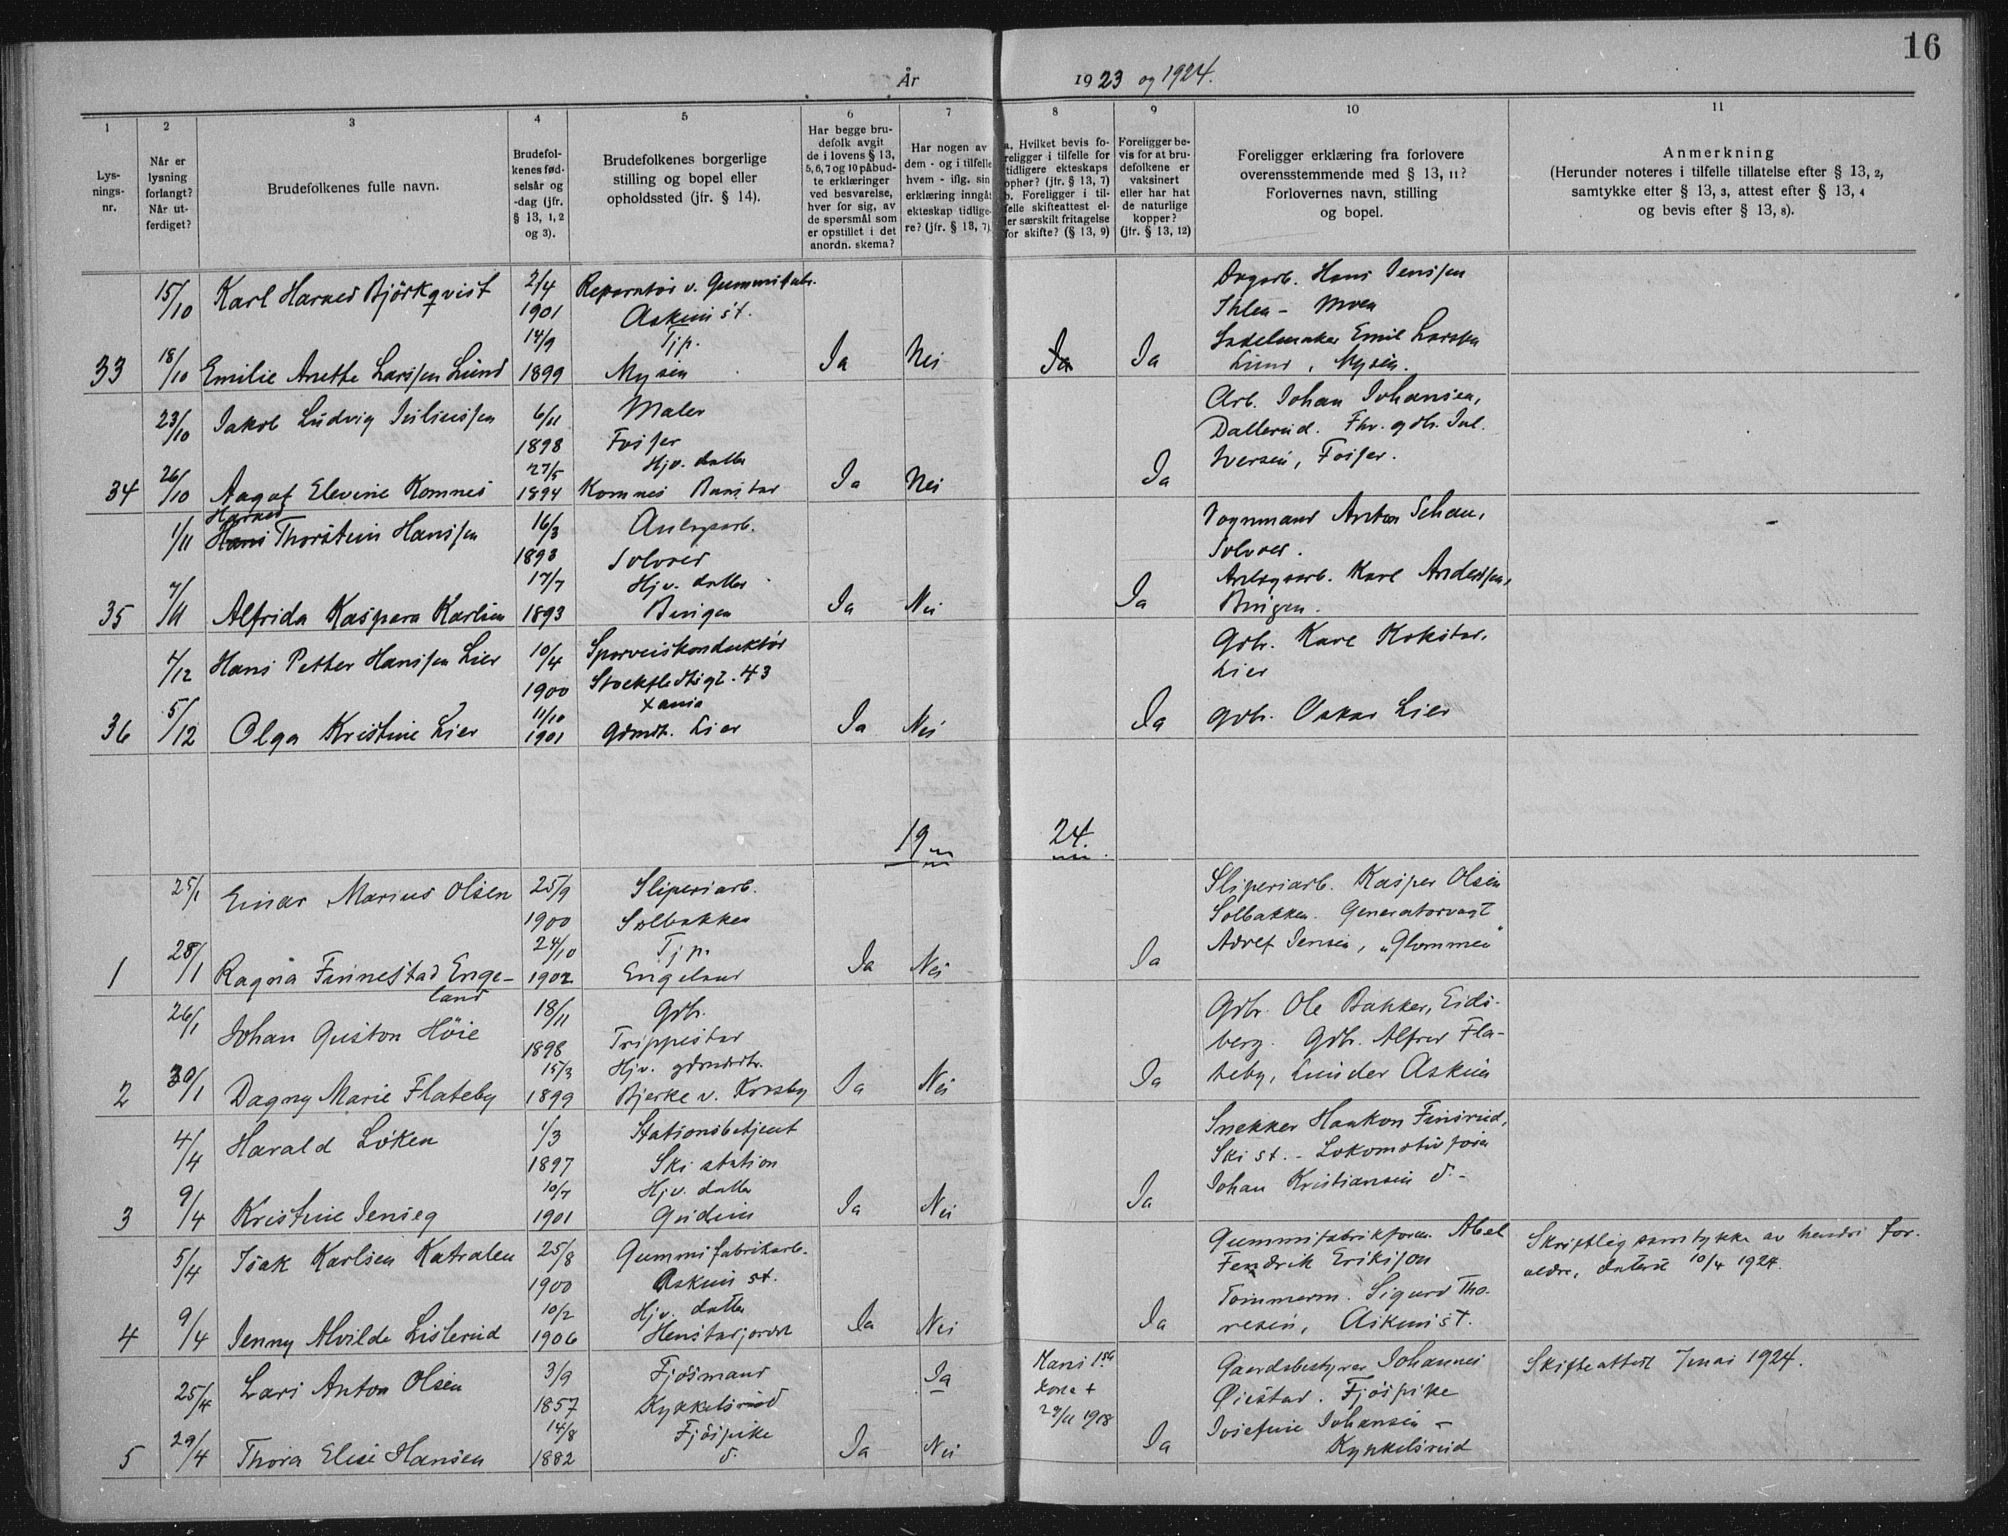 16
År 1923 og 1924.
1 2 3 4 5 6 7 8 9 10 11
Lys-
nings-
nr.
Når er
lysning
forlangt?
Når ut-
ferdiget?
Brudefolkenes fulle navn.
Brudefol-
kenes fød-
selsår og
-dag (jfr.
§ 13, 1, 2
og 3).
Brudefolkenes borgerlige
stilling og bopel eller
opholdssted (jfr. § 14).
Har begge bru-
defolk avgit
de i lovens § 13,
5, 6, 7 og 10 påbud-
te erklæringer
ved besvarelse,
hver for sig, av
de spørsmål som
er opstillet i det
anordn. skema?
Har nogen av
dem - og i tilfelle
hvem - iflg. sin
erklæring inngåt
ekteskap tidlige-
re? (jfr. § 13, 7)
a. Hvilket bevis fo-
religger i tilfelle for
tidligere ekteskaps
ophør? (jfr. § 13, 7)
b. Foreligger i til-
felle skifteattest el-
ler særskilt fritagelse
for skifte? (§ 13, 9)
Foreligger be-
vis for at bru-
defolkene er
vaksinert
eller har hat
de naturlige
kopper?
(jfr. § 13, 12)
Foreligger erklæring fra forlovere
overensstemmende med § 13, 11?
Forlovernes navn, stilling
og bopel.
Anmerkning
(Herunder noteres i tilfelle tillatelse efter § 13, 2,
samtykke efter § 13, 3, attest efter § 13, 4
og bevis efter § 13, 8).
15/10 Karl Harald Björkqvist 2/4 Reparatör v. Gummifabr. Dagarb. Hans Jenssen
1901 Askim st. Ihlen - Moen
14/9 Tjp. Sadelmaker Emil Larssen
33 18/10 Emilie Anette Larssen Lund 1899 Mysen Ja Nei Ja Ja Lund, Mysen.
23/10 Jakob Ludvig Juliussen 6/11 Maler Arb. Johan Johansen,
1898 Fosser Dallerud. Fhv. gdbr. Jul.
27/5 Hjv. datter Iversen, Fosser.
34 26/10 Aagot Elevine Komnes 1894 Komnes Ja Nei Ja
Harald
1/11 Hans Thorstein Hanssen 16/3 Anlegsarb. Vognmand Anton Schau,
1893 Solvoer Solvoer.
17/7 Hjv. datter Anlegsarb. Karl Anderssen,
35 7/11 Alfrida Kaspara Karlsen 1893 Bingen Ja Nei Ja Bingen.
4/12 Hans Petter Hanssen Lier 10/4 Sporveiskonduktör Gdbr. Karl Kokstad,
1900 Stockfledtsgt. 43 Lier
11/10 Xania
36 5/12 Olga Kristine Lier 1901 Gdmdt. Lier Ja Nei Ja Gdbr. Oskar Lier
19 24.
25/1 Einar Marius Olsen 25/9 Sliperiarb. Sliperiarb. Kasper Olsen
1900 Solbakken Solbakken. Generatorvagt
24/10 Tjp. Adolf Jensen, "Glommen"
1 28/1 Ragna Finnestad Enge- 1902 Engeland Ja Nei Ja
land
26/1 Johan Guston Höie 18/11 Gdbr. Gdbr. Ole Bakker, Eids-
1898 Trippestad berg. Gdbr. Alfred Fla-
15/3 Hjv. gdmdtr. teby, Lunder Askim
2 30/1 Dagny Marie Flateby 1899 Bjerke v. Korsby Ja Nei Ja
4/4 Harald Löken 1/3 Stationsbetjent Snekker Haakon Finsrud,
1897 Ski station Ski st. - Lokomotivförer
10/7 Hjv. datter Johan Kristiansen d. -
3 9/4 Kristine Jenseg 1901 Gudim Ja Nei Ja
5/4 Isak Karlsen Katralen 25/8 Gummifabrikarb. Gummifabrikform. Abel Skriftlig samtykke av hendes for-
1900 Askim st. Fendrik Eriksson ældre, datert 10/4 1924.
10/2 Hjv. datter Tömmerm. Sigurd Tho-
4 9/4 Jenny Alvilde Listerud 1906 Henstadjordet Ja Nei Ja resen, Askim st.
25/4 Lars Anton Olsen 3/9 Fjösmand Ja Hans 1ste Gaardsbestyrer Johannes Skifteattest 7 mai 1924.
1857 Kykkelsrud kone + Øiestad. Fjöspike
14/8 Fjöspike 29/11 1918 Josefine Johansen -
5 29/4 Thora Elise Hansen 1882 d. Ja Nei Ja Kykkelsrud